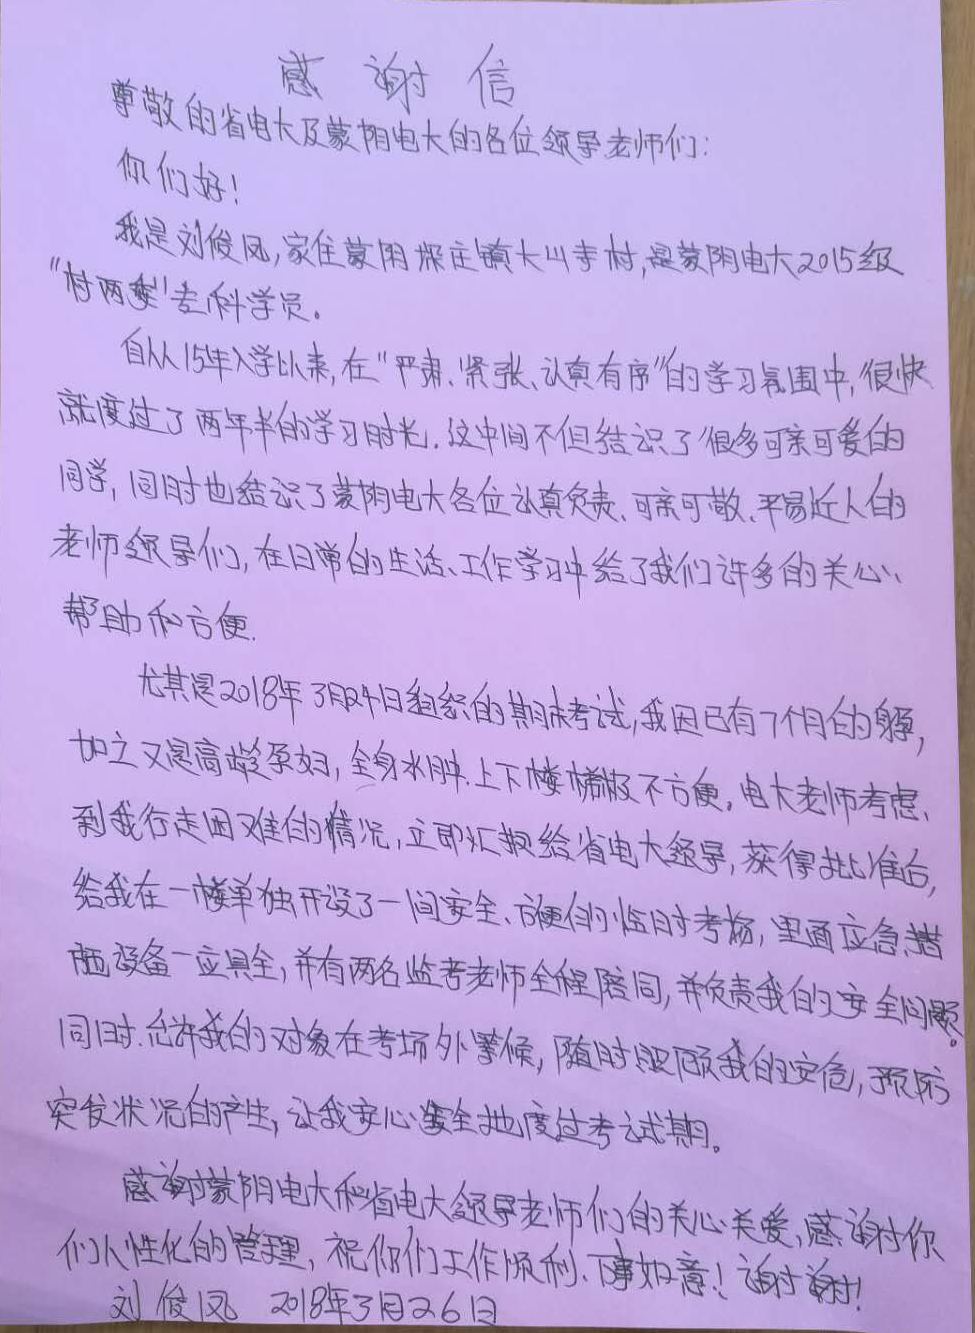 感谢信
尊敬的省电大及蒙阴电大的各位领导老师们:
你们好!
我是刘俊凤,家住蒙阴 庄镇大山寺村,是蒙阴电大2015级
"村两委"专科学员。
自从15年入学以来,在"严肃、紧张、认真有序"的学习氛围中,很快
就度过了两年半的学习时光.这中间不但结识了很多可亲可爱的
同学,同时也结识了蒙阴电大各位认真负责、可亲可敬、平易近人的
老师领导们,在日常的生活、工作学习中给了我们许多的关心、
帮助和方便.
尤其是2018年3月24日组织的期末考试,我因已有7个月的身孕,
加之又是高龄孕妇,全身水肿.上下楼梯极不方便,电大老师考虑
到我行走困难的情况,立即汇报给省电大领导,获得批准后,
给我在一楼单独开设了一间安全、方便的临时考场,里面应急措
施设备一应具全,并有两名监考老师全程陪同,并负责我的安全问题。
同时.允许我的对象在考场外等候,随时照顾我的安危,预防
突发状况的产生,让我安心安全地度过考试期。
感谢蒙阴电大和省电大领导老师们的关心关爱,感谢你
们人性化的管理,祝你们工作顺利、万事如意!谢谢!
刘俊凤 2018年3月26日